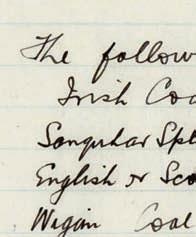 The follow
Irish Coa
Sanquhar Spl
English or Sco
Wigan Coal